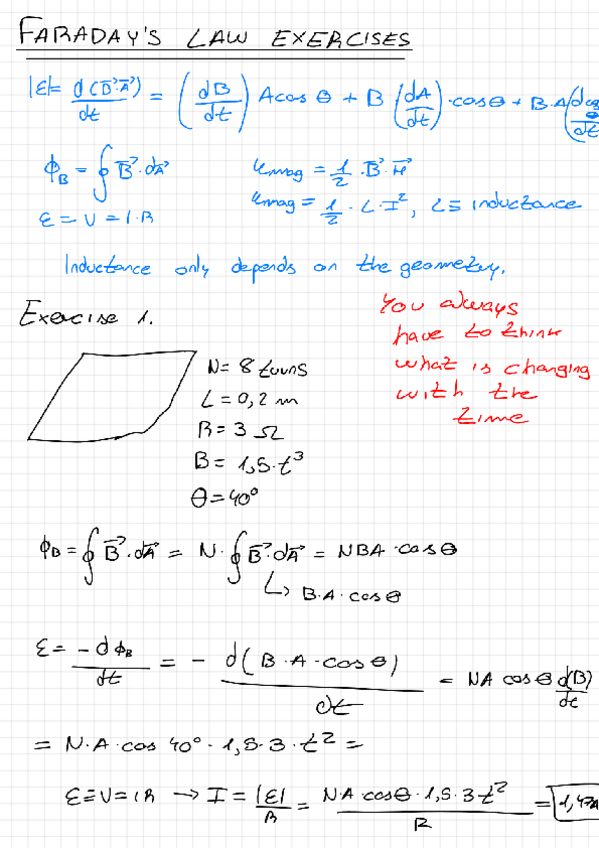 FARADAY'S LAW EXERCISES
|ε| = d(B⃗·A⃗)/dt = (dB/dt) A cos θ + B (dA/dt) · cos θ + B·A (d cos θ/dt
ϕ_B = ∮ B⃗·dA⃗
u_mag = 1/2 · B⃗·H⃗
ε = V = I·R
u_mag = 1/2 · L·I², L ≡ inductance
Inductance only depends on the geometry.
You always
have to think
what is changing
with the
time
Exercise 1.
N = 8 turns
L = 0,2 m
R = 3 Ω
B = 1,5·t³
θ = 40°
ϕ_B = ∮ B⃗·dA⃗ = N·∮ B⃗·dA⃗ = NBA·cos θ
↳ B·A·cos θ
ε = -dϕ_B/dt = - d(B·A·cos θ)/dt = NA cos θ d(B)/dt
= N·A·cos 40° · 1,5·3·t² =
ε ≡ V = IR → I = |ε|/R = N·A cos θ·1,5·3t²/R =